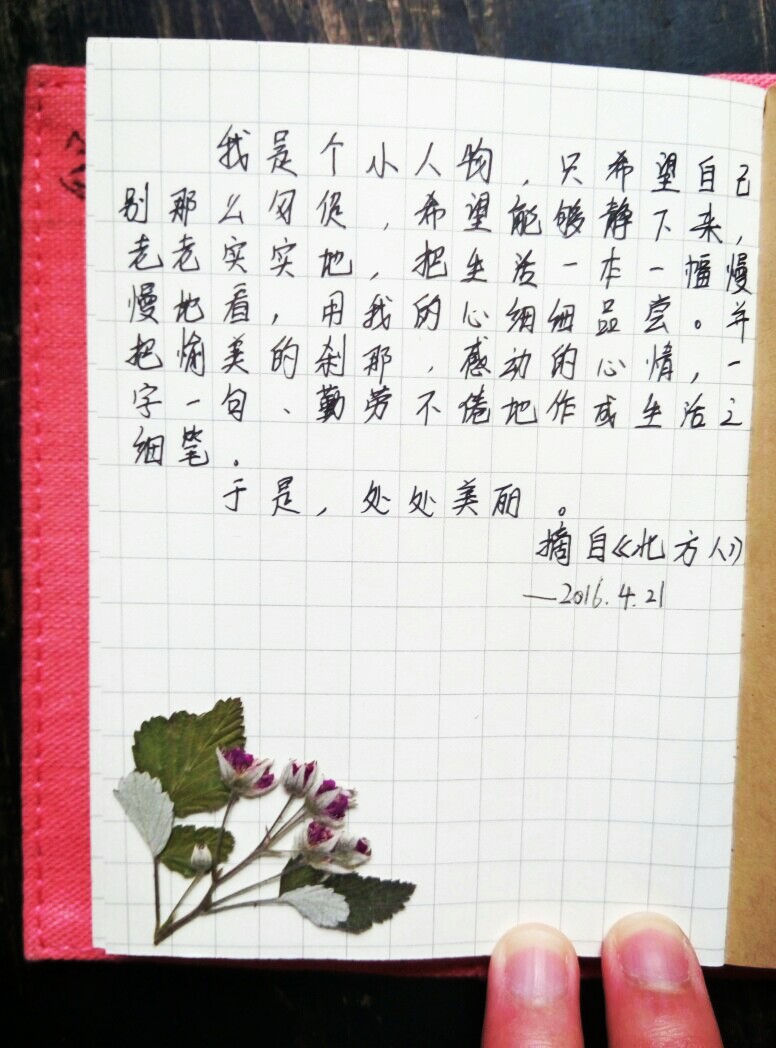 我是个小人物，只希望自己
别那么匆促，希望能够静下来，
老老实实地，把生活一本一幅慢
慢地看，用我的心细细品尝。并
把愉美的刹那，感动的心情，一
字一句、勤劳不倦地作成生活之
细笔。
于是，处处美丽。
摘自《北方人》
—2016.4.21